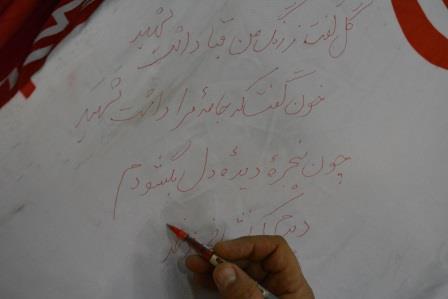 گل گفت ز رنگ من قبا داشت شهید
خون گفت که جامهٔ مرا داشت شهید
چون پنجرهٔ دیدهٔ دل بگشودم
دیدم که